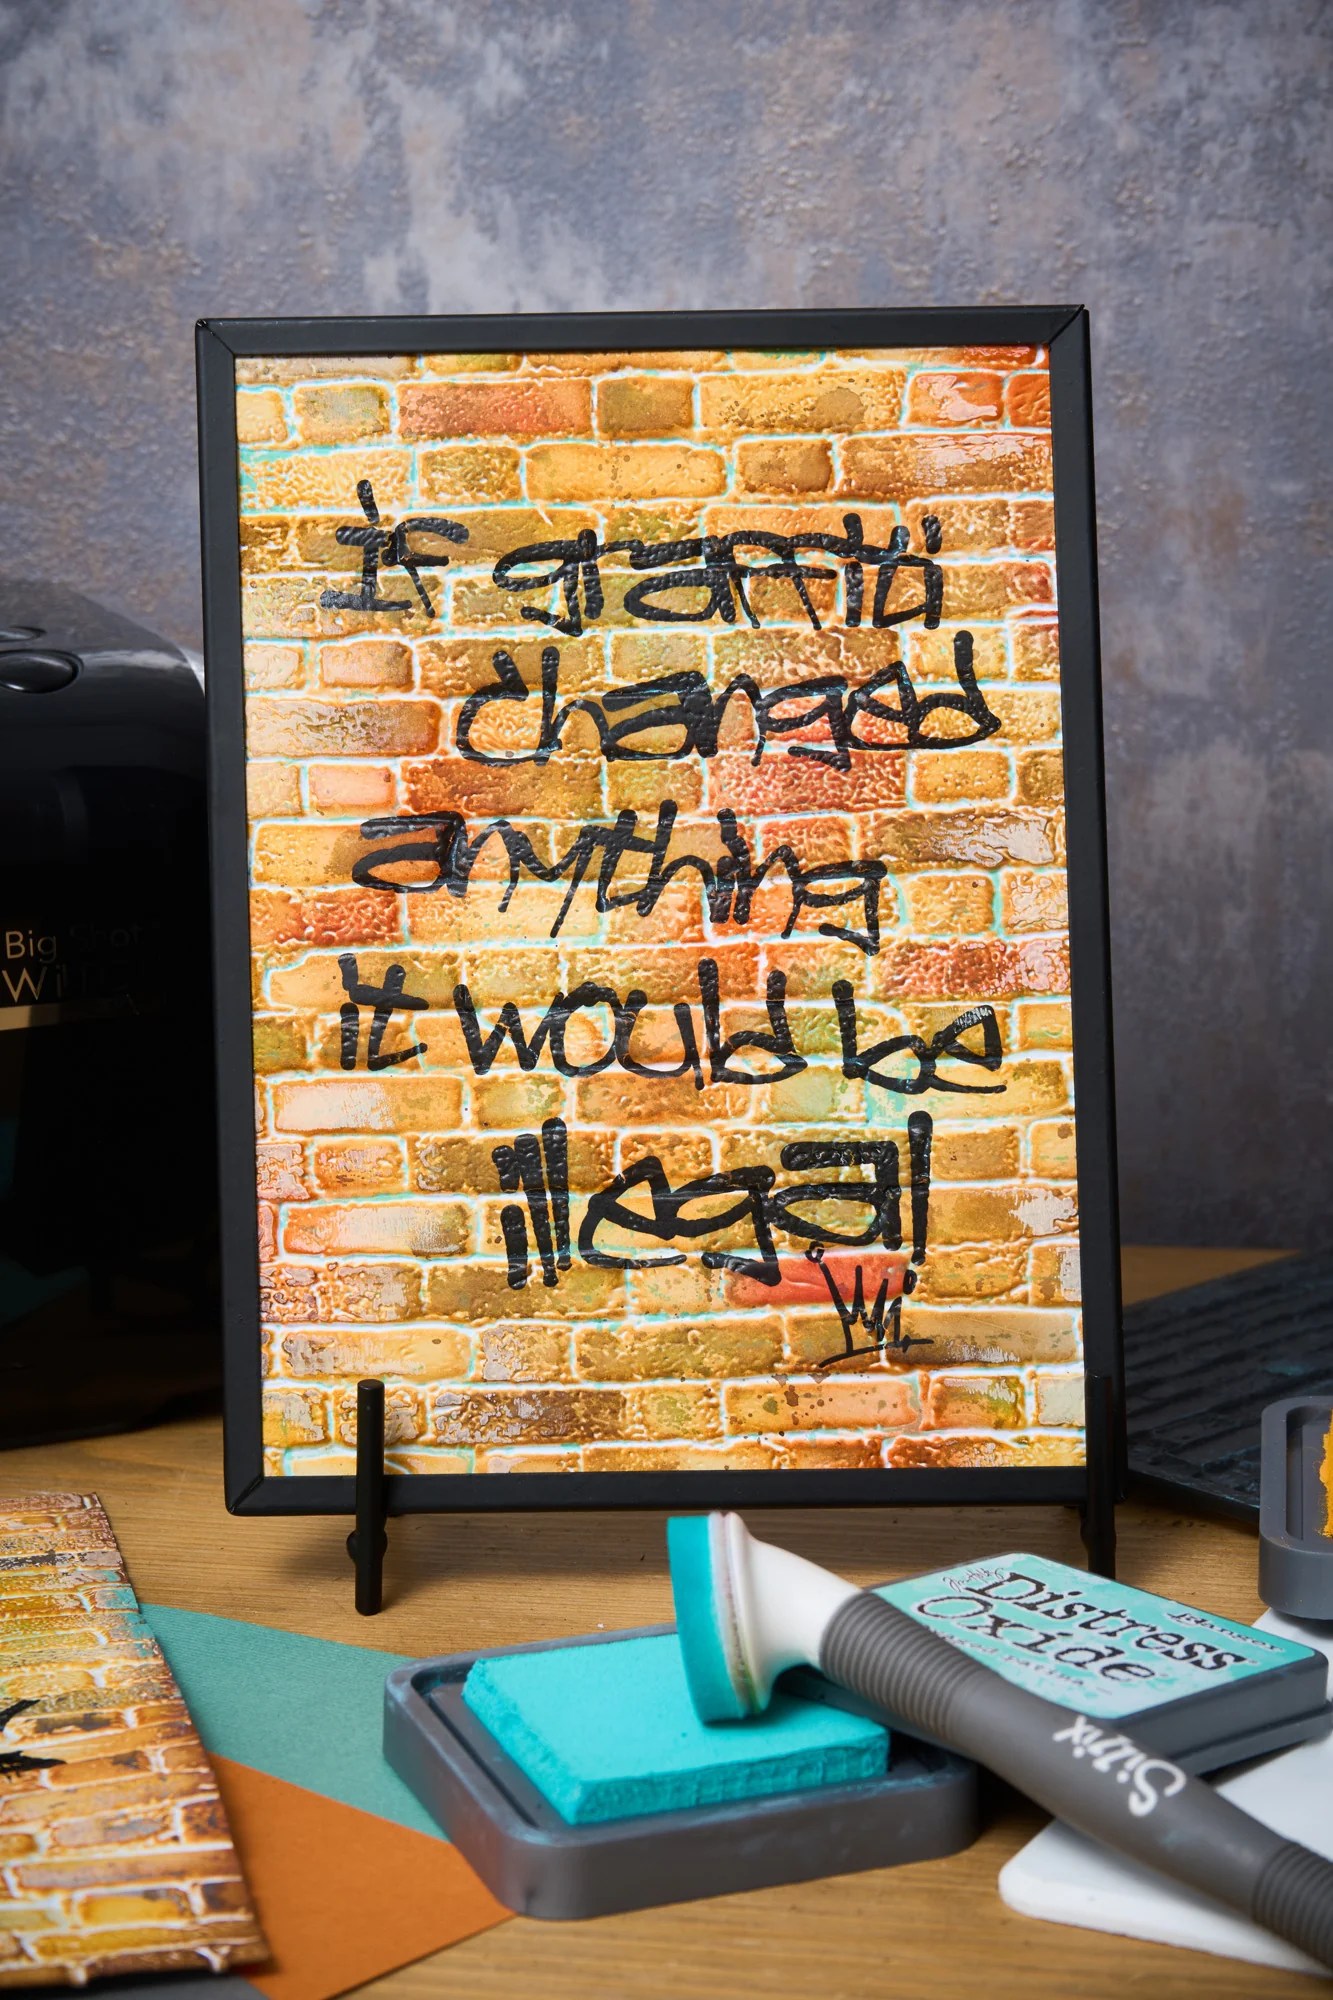 if graffiti
changed
anything
it would be
illegal!
Big Shot
Distress
Oxide
Sizzix